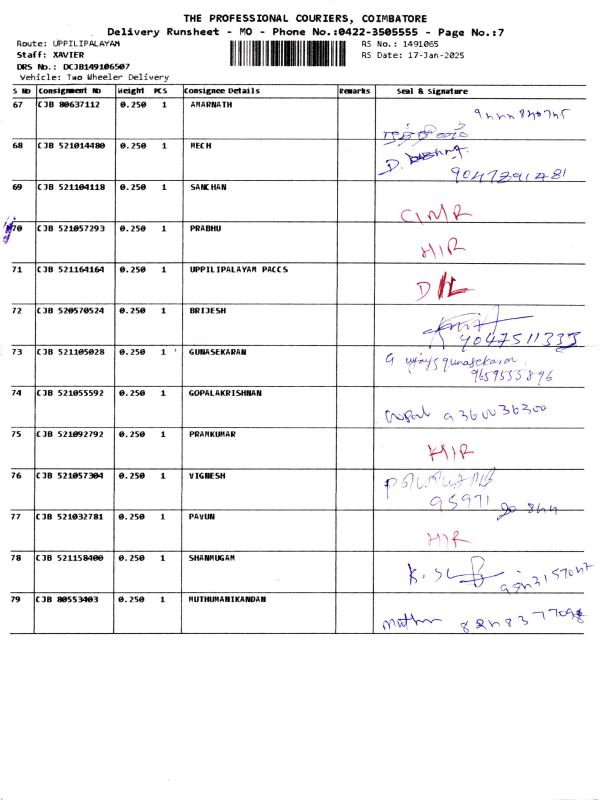 THE PROFESSIONAL COURIERS, COIMBATORE
Delivery Runsheet - MO - Phone No.:0422-3505555 - Page No.:7
Route: UPPILIPALAYAM RS No.: 1491065
Staff: XAVIER RS Date: 17-Jan-2025
DRS No.: DCJB149106507
Vehicle: Two Wheeler Delivery
S No Consignment No Weight PCS Consignee Details Remarks Seal & Signature
67 CJB 80637112 0.250 1 AMARNATH
68 CJB 521014480 0.250 1 MECH D.
9047291481
69 CJB 521104118 0.250 1 SANCHAN
70 CJB 521057293 0.250 1 PRABHU
71 CJB 521164164 0.250 1 UPPILIPALAYAM PACCS
72 CJB 520570524 0.250 1 BRIJESH
9047511333
73 CJB 521105028 0.250 1 GUNASEKARAN G gunasekaran
9659555896
74 CJB 521055592 0.250 1 GOPALAKRISHNAN
9360036300
75 CJB 521092792 0.250 1 PRAMKUMAR
76 CJB 521057304 0.250 1 VIGNESH
95971
77 CJB 521032781 0.250 1 PAVUN
78 CJB 521158400 0.250 1 SHANMUGAM
79 CJB 80553403 0.250 1 MUTHUMANIKANDAN